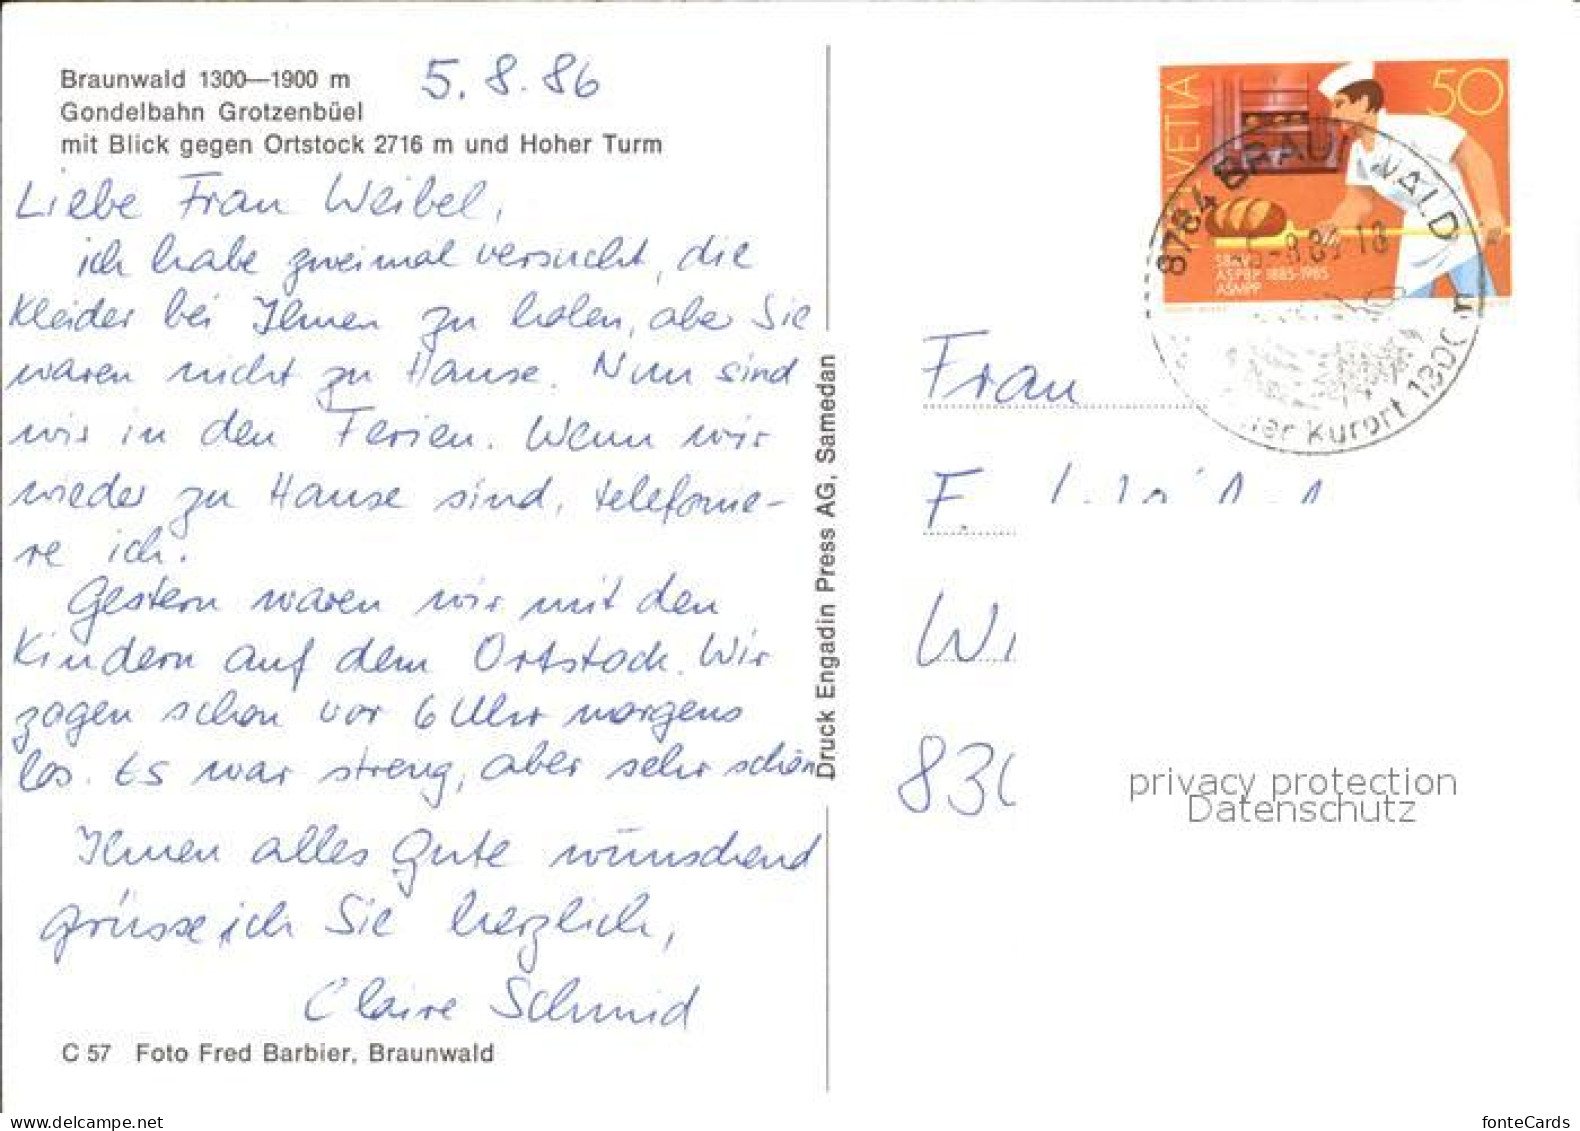 Braunwald 1300—1900 m
5. 8. 86
Gondelbahn Grotzenbüel
mit Blick gegen Ortstock 2716 m und Hoher Turm
Liebe Frau Weibel,
ich habe zweimal versucht, die
Kleider bei Ihnen zu holen, aber Sie
waren nicht zu Hause. Nun sind
wir in den Ferien. Wenn wir
wieder zu Hause sind, telefonie-
re ich.
Gestern waren wir mit den
Kindern auf dem Ortstock. Wir
zogen schon vor 6 Uhr morgens
los. Es war streng, aber sehr schön
Ihnen alles Gute wünschend
grüsse ich Sie herzlich,
Claire Schmid
C 57 Foto Fred Barbier, Braunwald
Druck Engadin Press AG, Samedan
HELVETIA
50
SBKV
ASPBP 1885-1985
ASMPP
8784 BRAUNWALD
Kurort 1300 m
Frau
F.
privacy protection
Datenschutz
www.delcampe.net
fonteCards